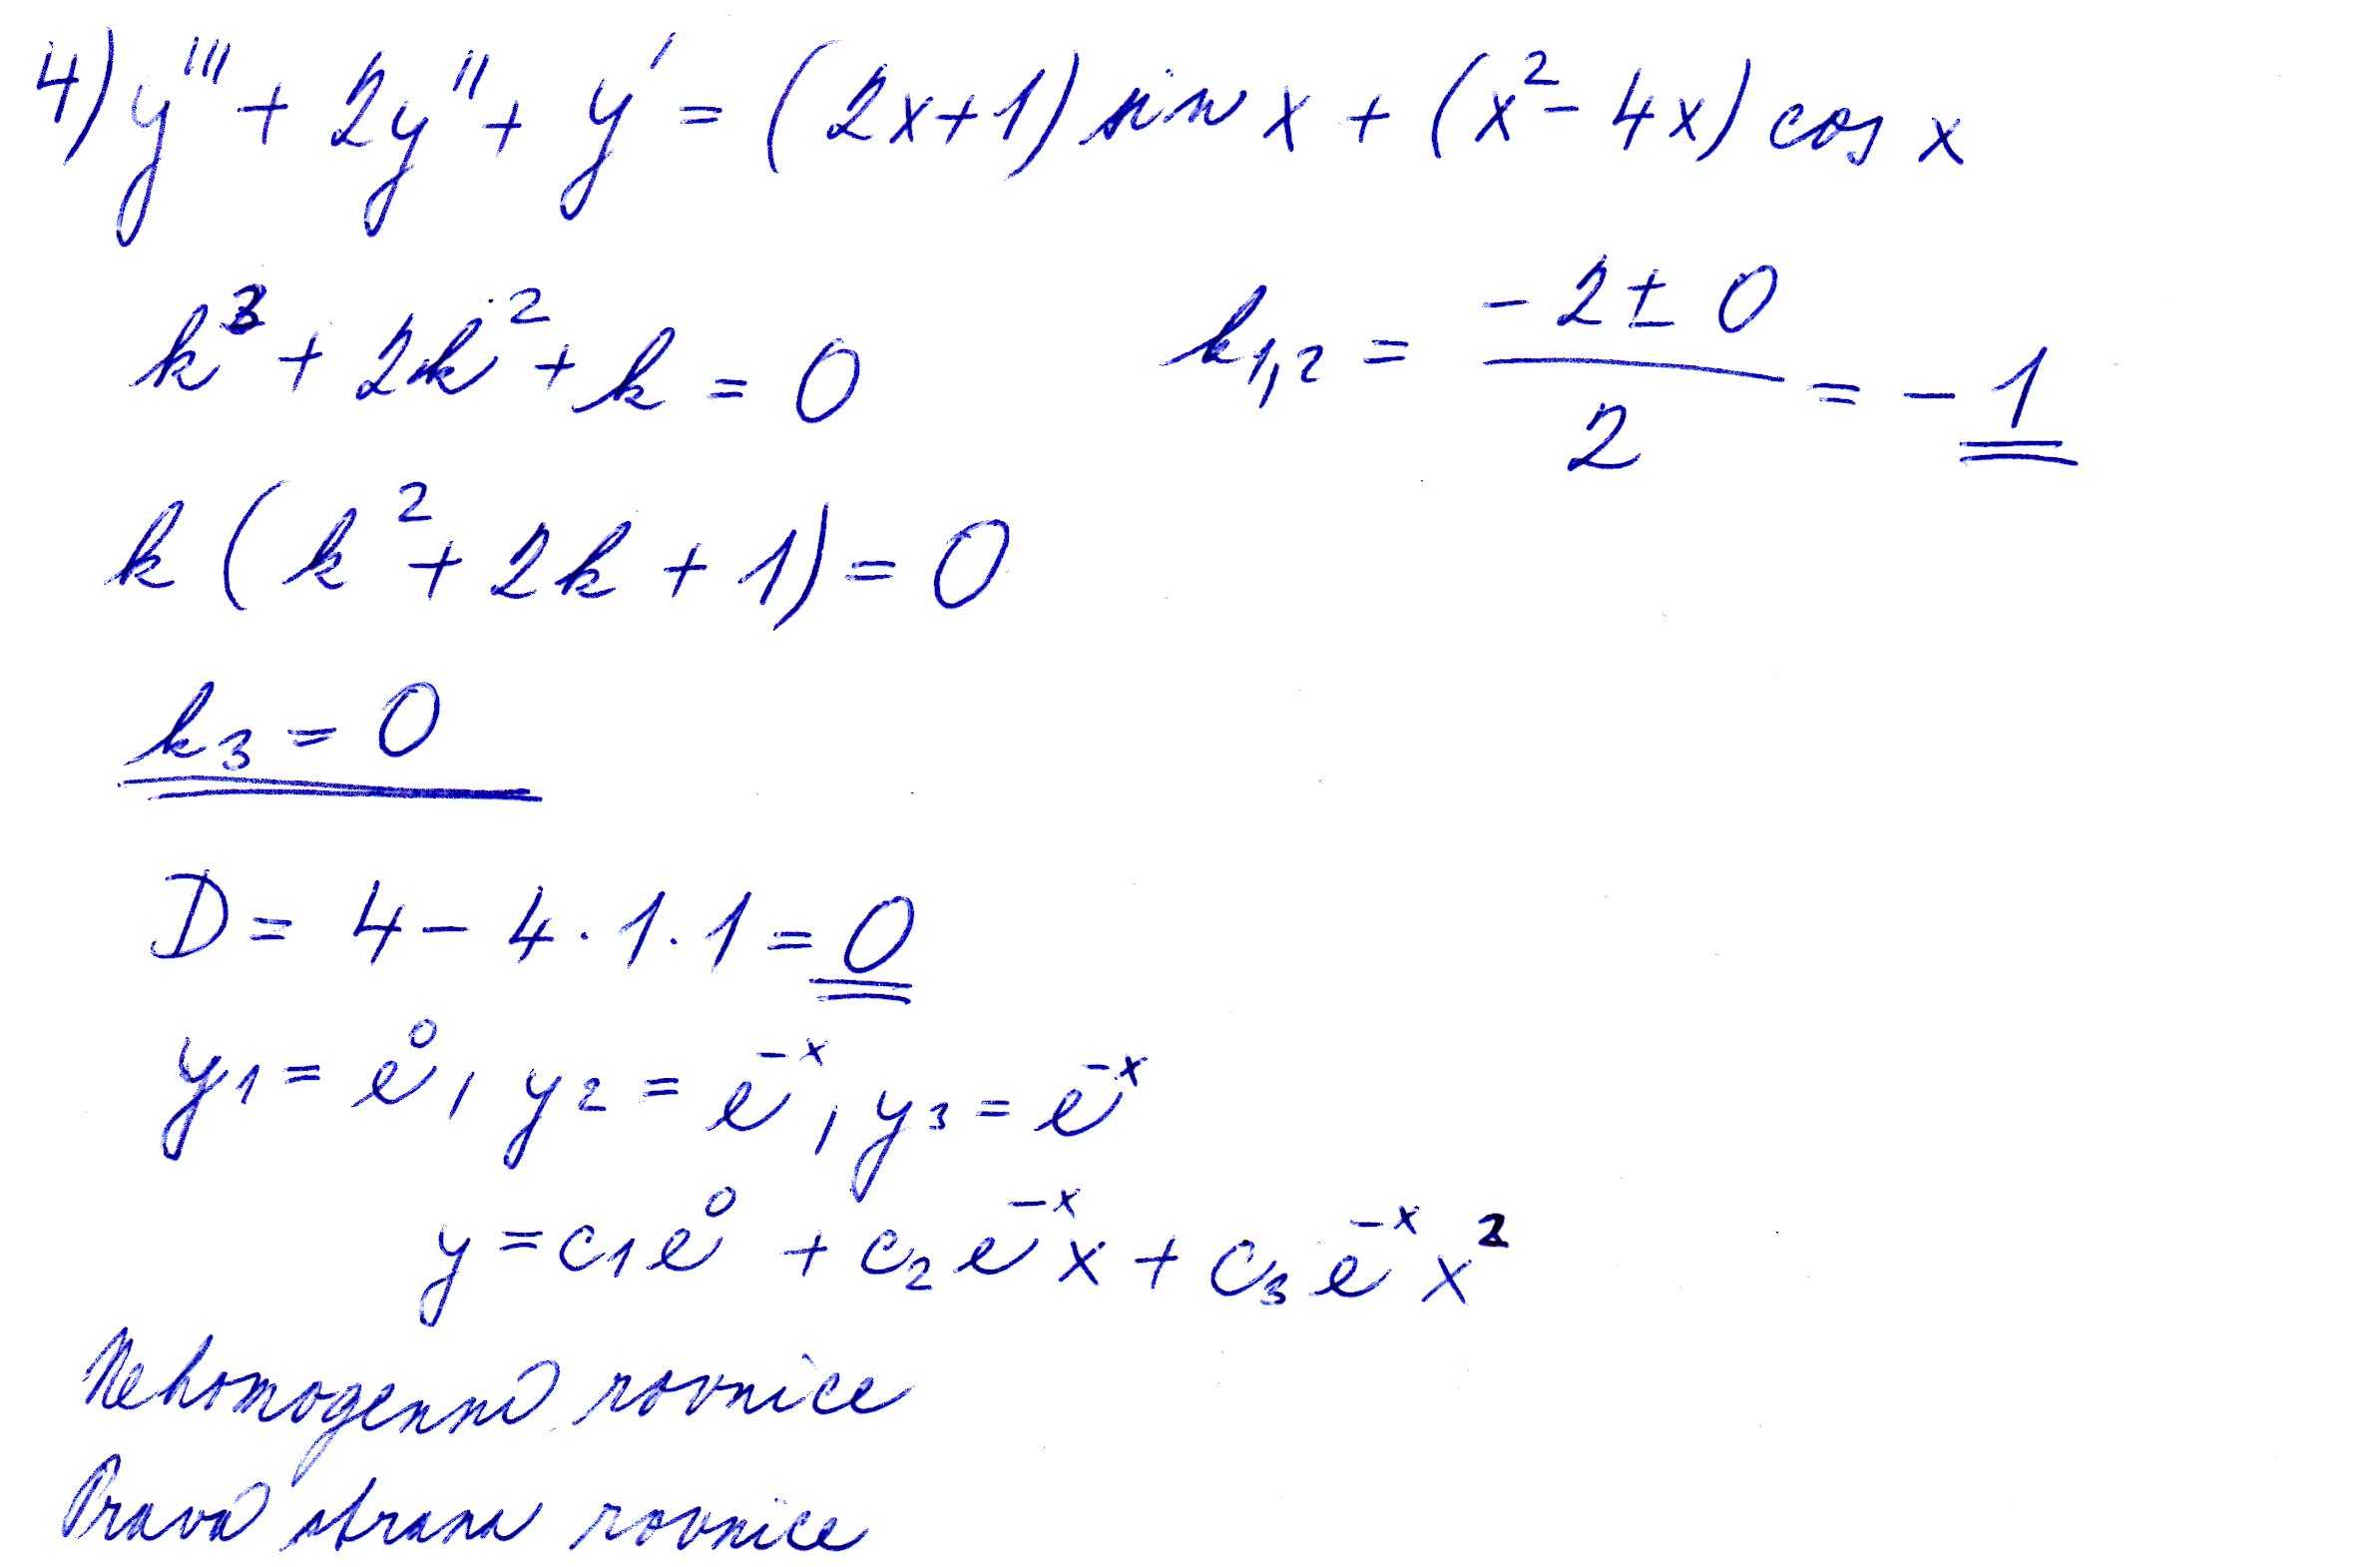 4) y''' + 2y'' + y' = (2x+1) sin x + (x² - 4x) cos x
k³ + 2k² + k = 0
k₁,₂ = (-2 ± 0)/2 = -1
k (k² + 2k + 1) = 0
k₃ = 0
D = 4 - 4 · 1 · 1 = 0
y₁ = e⁰, y₂ = e⁻ˣ, y₃ = e⁻ˣ
y = c₁e⁰ + c₂e⁻ˣx + c₃e⁻ˣx²
Nehomogenní rovnice
Pravá strana rovnice